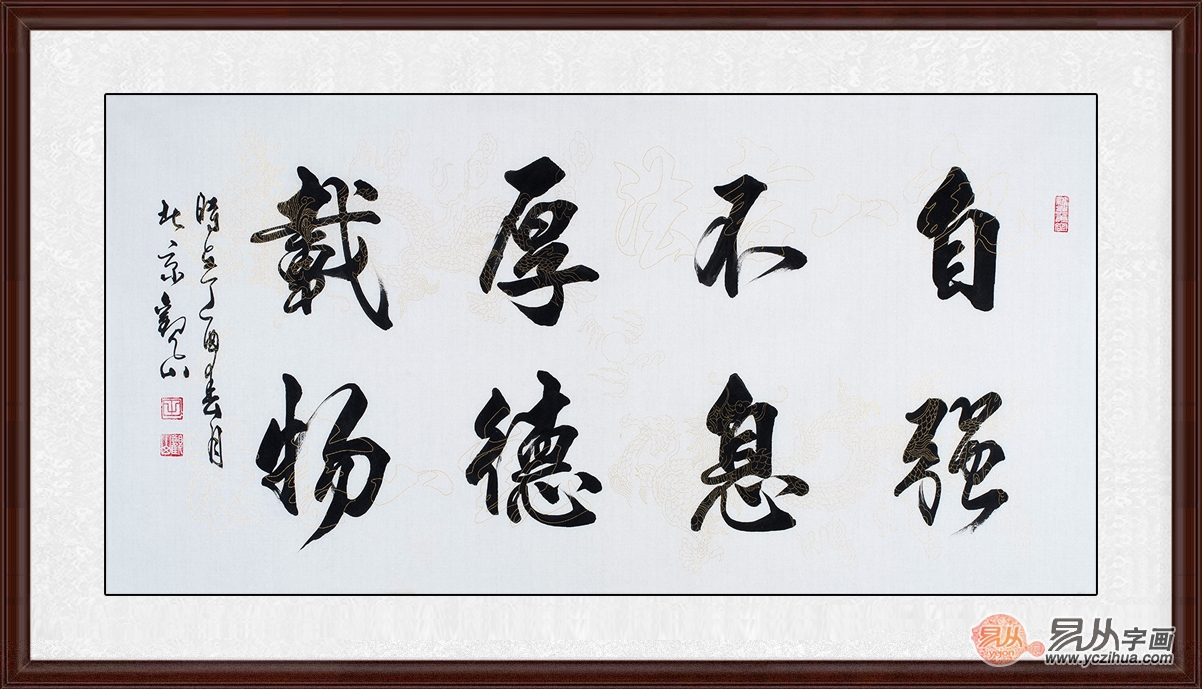 自强
不息
厚德
载物
时在丁酉春月
北京观山
易从
易从字画
www.yczihua.com